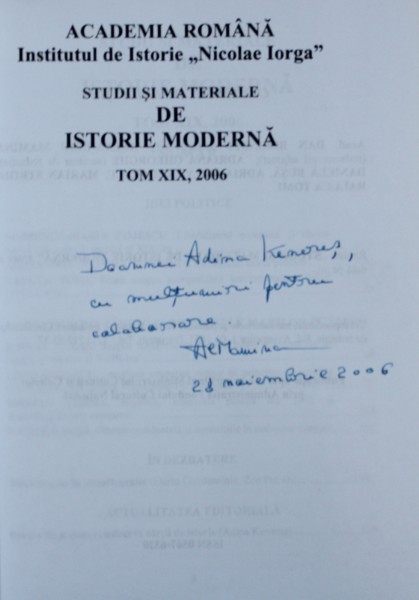 ACADEMIA ROMÂNĂ
Institutul de Istorie „Nicolae Iorga”
STUDII ȘI MATERIALE
DE
ISTORIE MODERNĂ
TOM XIX, 2006
Doamnei Adina Kenereș,
cu mulțumiri pentru
colaborare.
28 noiembrie 2006